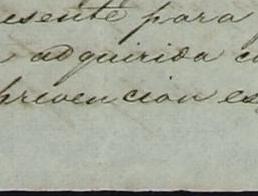 esente para
adquirida c
prevencion es